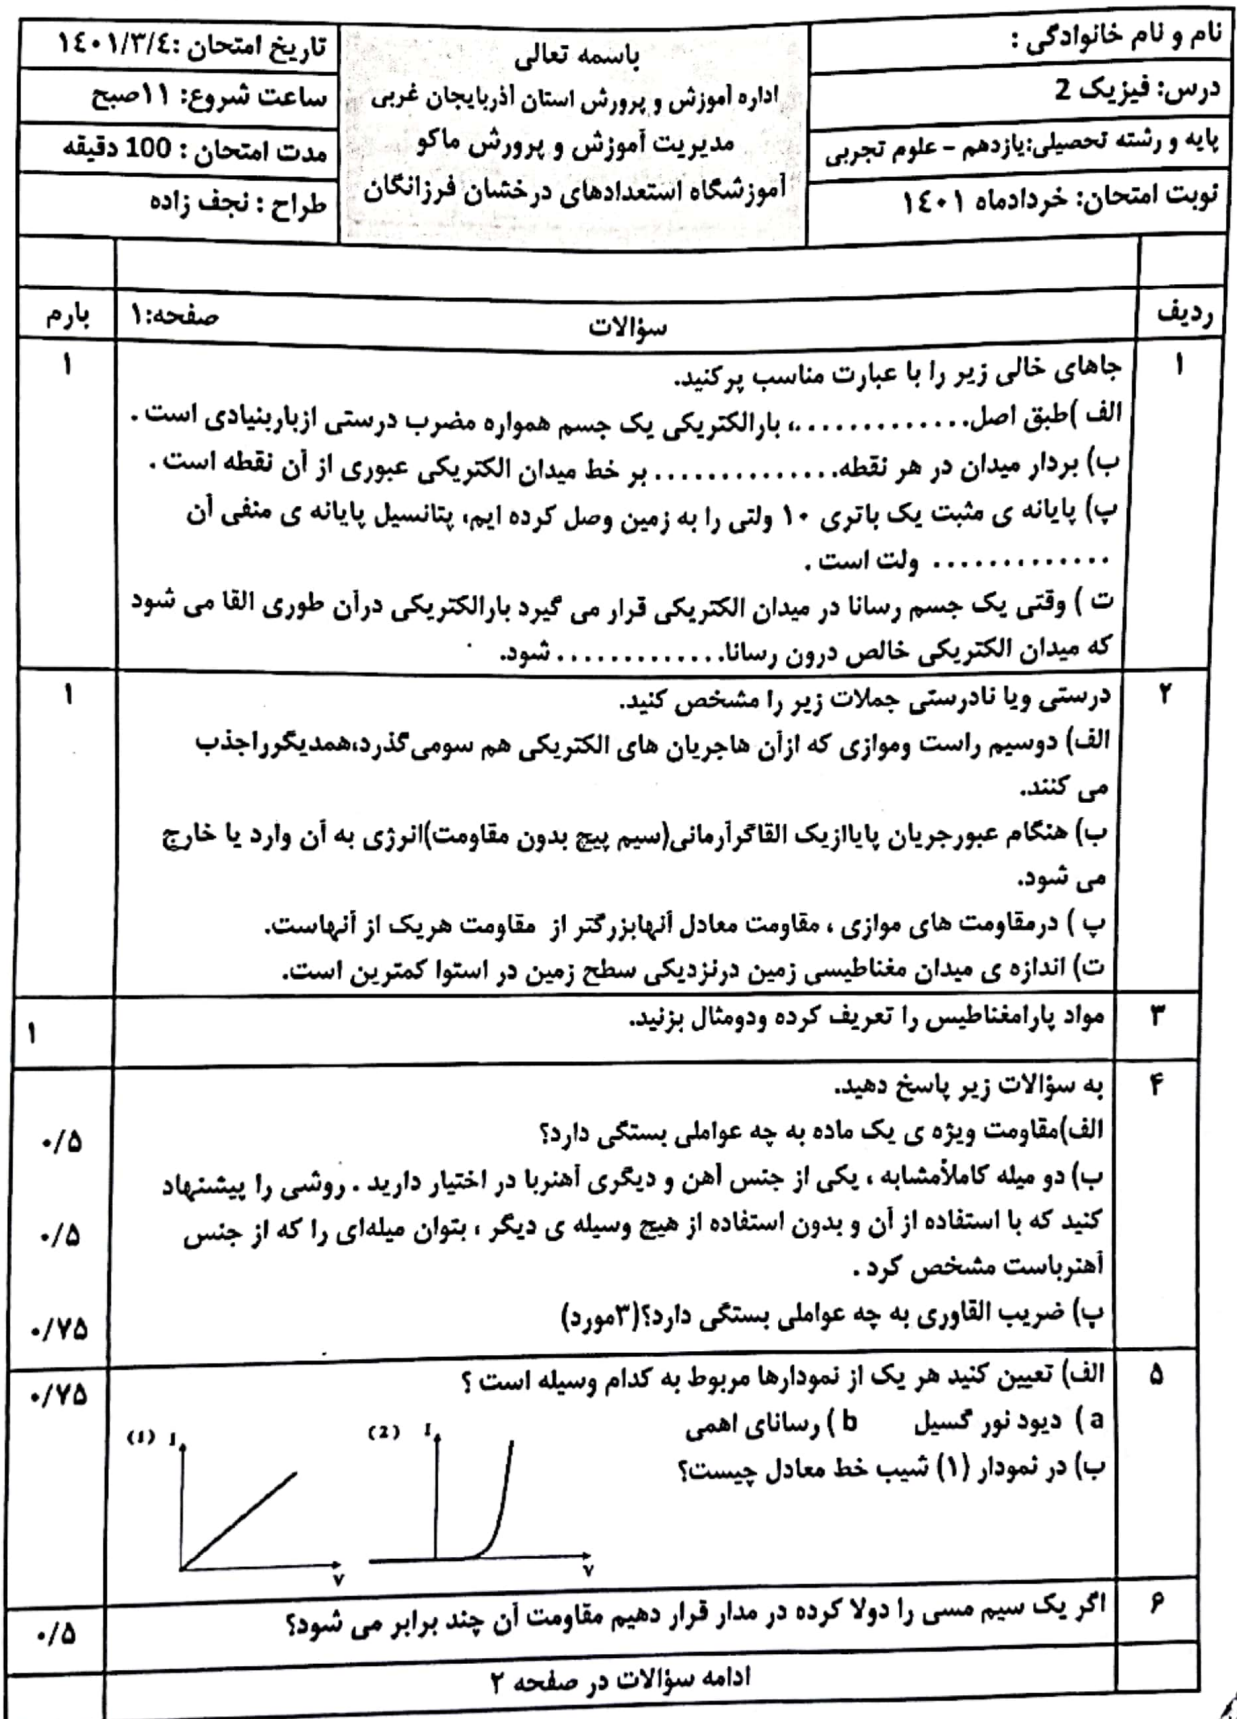 نام و نام خانوادگی :
درس: فیزیک 2
پایه و رشته تحصیلی:یازدهم - علوم تجربی
نوبت امتحان: خردادماه ١٤٠١
باسمه تعالی
اداره آموزش و پرورش استان آذربایجان غربی
مدیریت آموزش و پرورش ماکو
آموزشگاه استعدادهای درخشان فرزانگان
تاریخ امتحان :١٤٠١/٣/٤
ساعت شروع: ١١صبح
مدت امتحان : 100 دقیقه
طراح : نجف زاده
ردیف
سؤالات
صفحه:۱
بارم
۱
جاهای خالی زیر را با عبارت مناسب پرکنید.
۱
الف )طبق اصل..............، بارالکتریکی یک جسم همواره مضرب درستی ازباربنیادی است .
ب) بردار میدان در هر نقطه............... بر خط میدان الکتریکی عبوری از آن نقطه است .
پ) پایانه ی مثبت یک باتری ۱۰ ولتی را به زمین وصل کرده ایم، پتانسیل پایانه ی منفی آن
............. ولت است .
ت ) وقتی یک جسم رسانا در میدان الکتریکی قرار می گیرد بارالکتریکی درآن طوری القا می شود
که میدان الکتریکی خالص درون رسانا............. شود.
۲
درستی ویا نادرستی جملات زیر را مشخص کنید.
۱
الف) دوسیم راست وموازی که ازآن هاجریان های الکتریکی هم سومی‌گذرد،همدیگرراجذب
می کنند.
ب) هنگام عبورجریان پایاازیک القاگرآرمانی(سیم پیچ بدون مقاومت)انرژی به آن وارد یا خارج
می شود.
پ ) درمقاومت های موازی ، مقاومت معادل آنهابزرگتر از مقاومت هریک از آنهاست.
ت) اندازه ی میدان مغناطیسی زمین درنزدیکی سطح زمین در استوا کمترین است.
۳
مواد پارامغناطیس را تعریف کرده ودومثال بزنید.
۱
۴
به سؤالات زیر پاسخ دهید.
الف)مقاومت ویژه ی یک ماده به چه عواملی بستگی دارد؟
۰/۵
ب) دو میله کاملاًمشابه ، یکی از جنس آهن و دیگری آهنربا در اختیار دارید . روشی را پیشنهاد
کنید که با استفاده از آن و بدون استفاده از هیچ وسیله ی دیگر ، بتوان میله‌ای را که از جنس
۰/۵
آهنرباست مشخص کرد .
پ) ضریب القاوری به چه عواملی بستگی دارد؟(۳مورد)
۰/۷۵
۵
الف) تعیین کنید هر یک از نمودارها مربوط به کدام وسیله است ؟
۰/۷۵
a ) دیود نور گسیل b ) رسانای اهمی
ب) در نمودار (۱) شیب خط معادل چیست؟
(1) I
V
(2) I
V
۶
اگر یک سیم مسی را دولا کرده در مدار قرار دهیم مقاومت آن چند برابر می شود؟
۰/۵
ادامه سؤالات در صفحه ۲